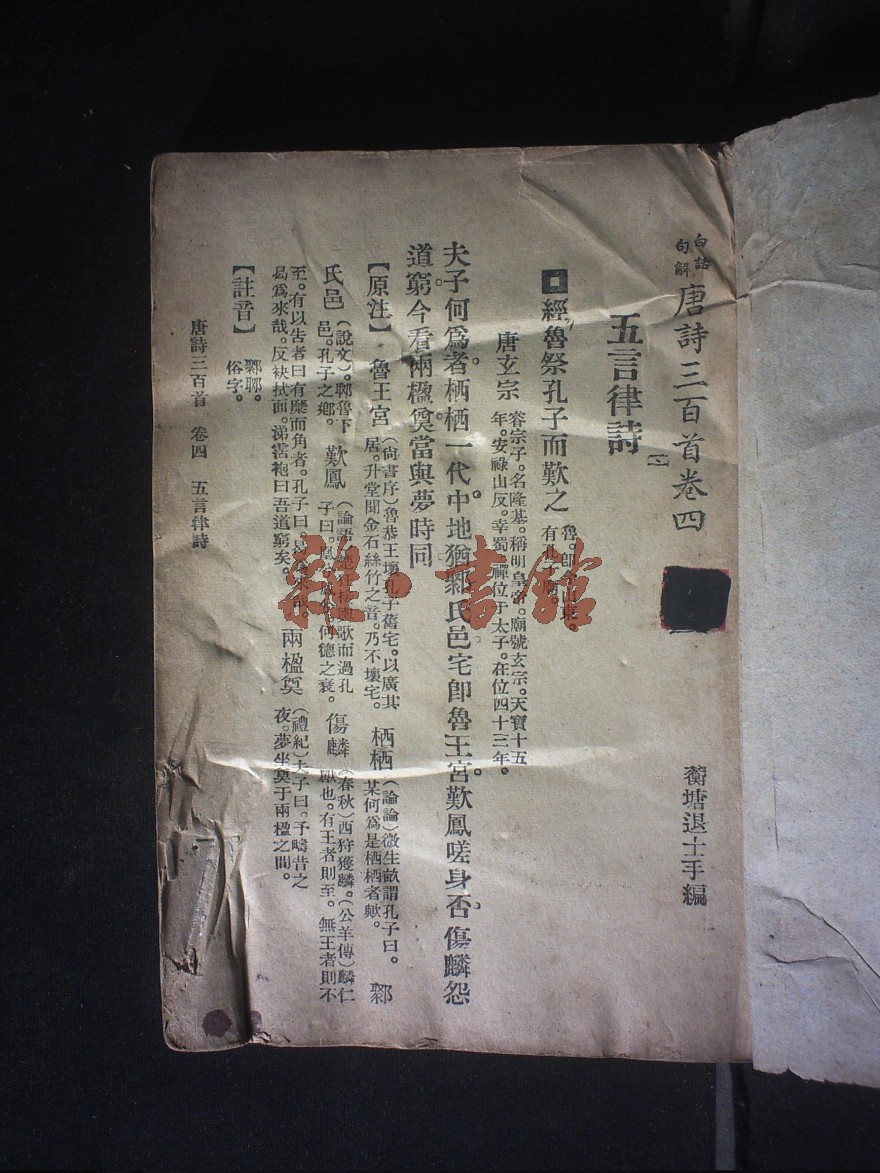 白話句解 唐詩三百首卷四
蘅塘退士手編
五言律詩
經魯祭孔子而歎之 魯。卽今山東。
有孔子
唐玄宗 睿宗子。名隆基。稱明皇帝。廟號玄宗。天寶十五
年。安祿山反。幸蜀。禪位于太子。在位四十三年。
夫子何爲者。栖栖一代中。地猶鄹氏邑。宅卽魯王宮。歎鳳嗟身否。傷麟怨
道窮。今看兩楹奠。當與夢時同
【原注】 魯王宮 (尙書序)魯恭王壞孔子舊宅。以廣其
居。升堂聞金石絲竹之音。乃不壞宅。 栖栖 (論論)微生畝謂孔子曰。
某何爲是栖栖者歟。 鄹
氏邑 (說文)。鄹魯下
邑。孔子之鄕。 歎鳳 (論語)楚狂接輿歌而過孔
子曰。鳳兮鳳兮何德之衰。 傷麟 (春秋)西狩獲麟。(公羊傳)麟仁
獸也。有王者則至。無王者則不
至。有以告者曰有麏而角者。孔子曰。曷爲來哉。
曷爲來哉。反袂拭面。涕霑袍曰吾道窮矣。 兩楹奠 (禮紀)夫子曰。予疇昔之
夜。夢坐奠于兩楹之間。
【註音】 鄹郰。
俗字。
唐詩三百首 卷四 五言律詩
雜·書館